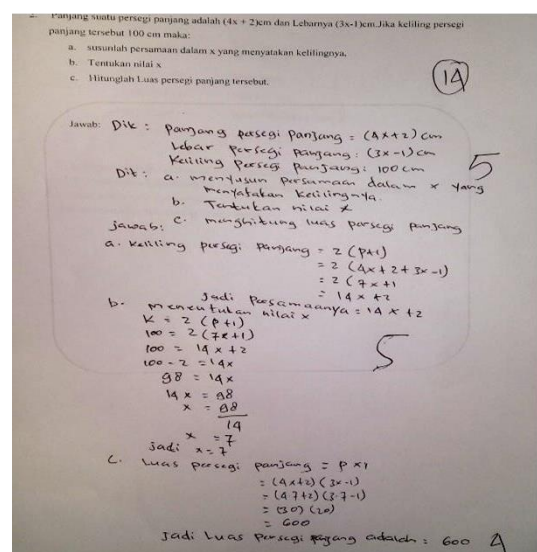 2. Panjang suatu persegi panjang adalah (4x + 2)cm dan Lebarnya (3x-1)cm.Jika keliling persegi
panjang tersebut 100 cm maka:
a. susunlah persamaan dalam x yang menyatakan kelilingnya.
b. Tentukan nilai x
c. Hitunglah Luas persegi panjang tersebut.
14
Jawab: Dik : panjang persegi panjang = (4x+2) cm
Lebar persegi panjang : (3x-1) cm
Keliling persegi panjang : 100 cm
5
Dit : a. menyusun persamaan dalam x yang
menyatakan kelilingnya.
b. Tentukan nilai x
c. menghitung luas persegi panjang
jawab :
a. keliling persegi panjang = 2 (p+l)
= 2 (4x+2+3x-1)
= 2 (7x+1
= 14x+2
Jadi persamaanya = 14x+2
b. menentukan nilai x
K = 2 (p+l)
100 = 2 (7x+1)
100 = 14x+2
100-2 = 14x
98 = 14x
14x = 98
x = 98
14
x = 7
jadi x = 7
5
c. Luas persegi panjang = p x l
= (4x+2) (3x-1)
= (4.7+2) (3.7-1)
= (30) (20)
= 600
Jadi Luas persegi adalah : 600
4